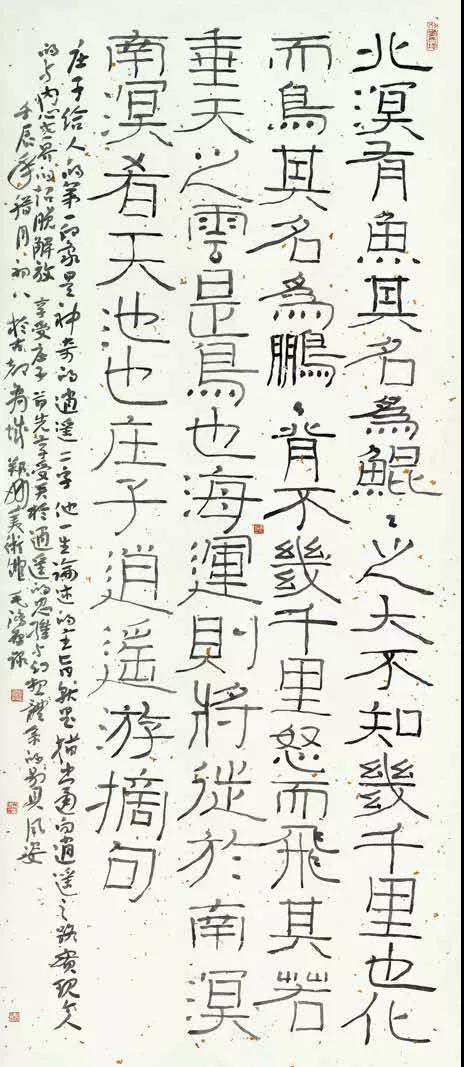 北溟有魚其名為鯤〻之大不知幾千里也化
而鳥其名為鵬〻背不幾千里怒而飛其若
垂天之雲是鳥也海運則將徙於南溟
南溟者天池也庄子逍遥游摘句
庄子给人的第一印象是神奇的逍遥二字他一生論述的主旨就是指出通向逍遥之路實現人
的与内心世界的招脱解放享受庄子首先享受其於逍遥的思維与構想體系的别具風姿
壬辰年月初八於古都商城鄭州美術館